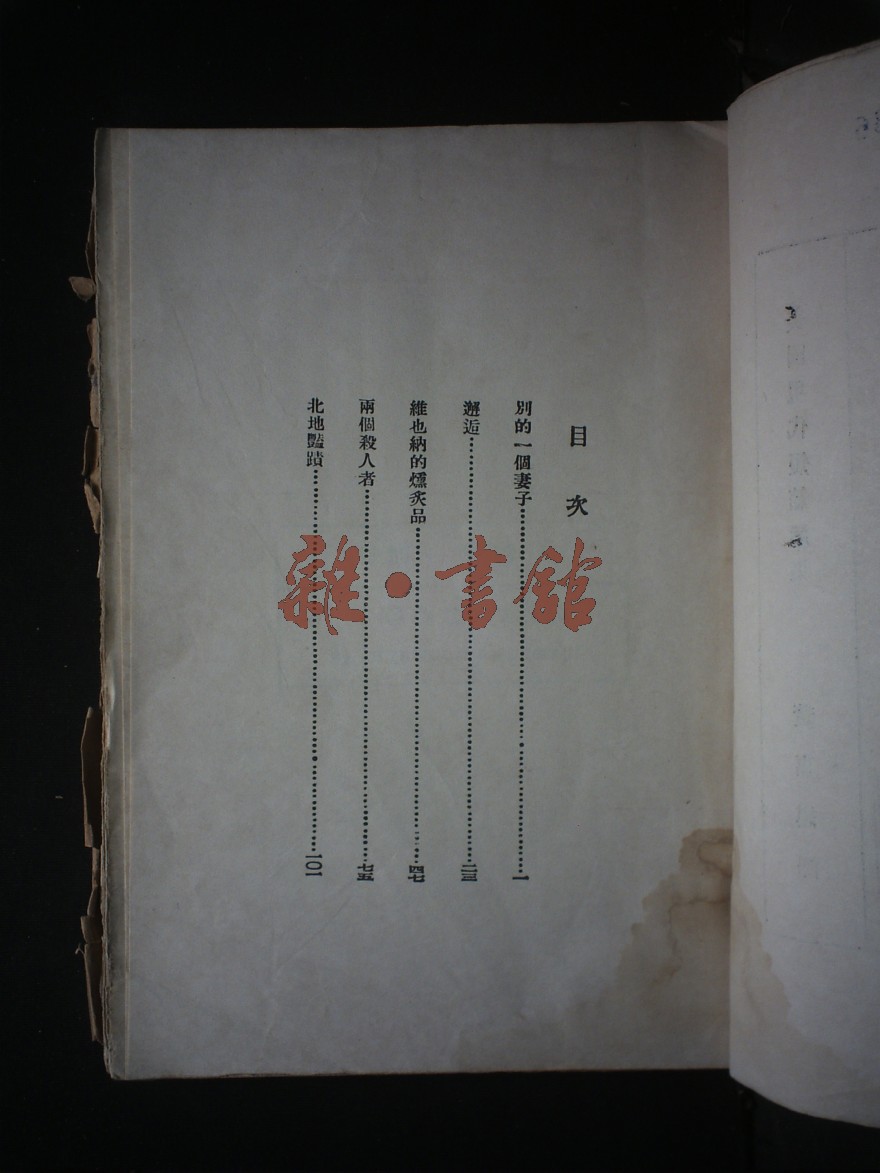 目次
別的一個妻子……一
邂逅……二三
維也納的燻炙品……四七
兩個殺人者……七五
北地豔蹟……一〇一
雜·書館